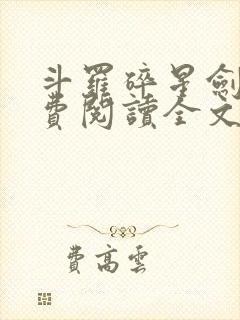 斗羅碎星劍
費閱讀全文
費高雲